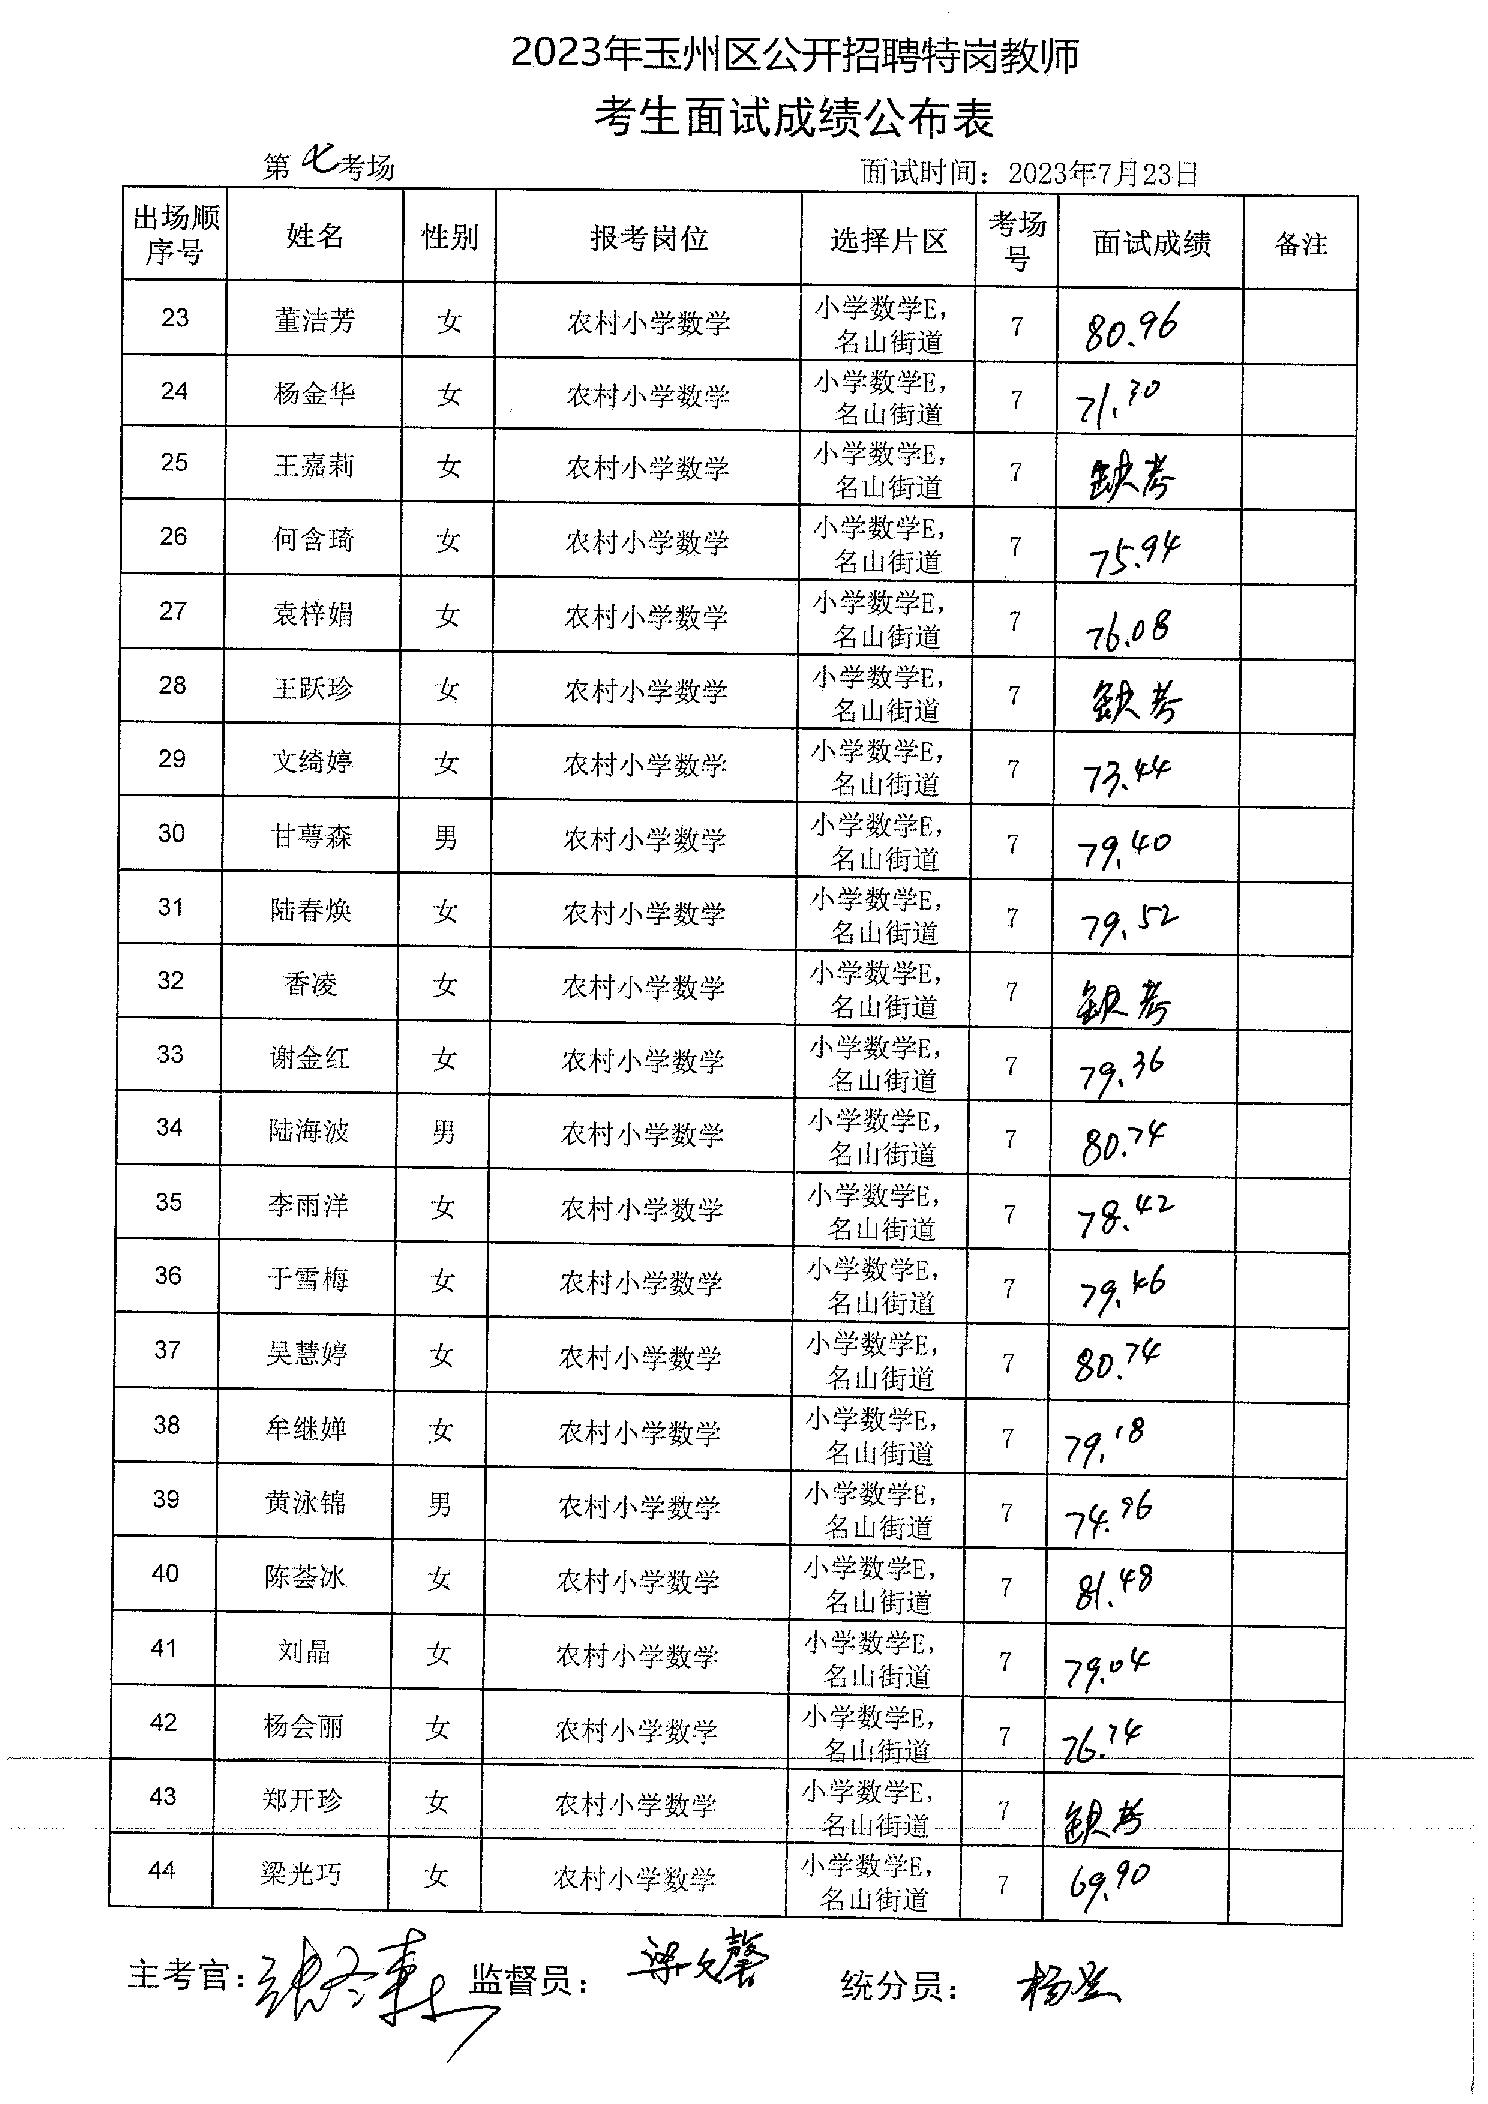 2023年玉州区公开招聘特岗教师
考生面试成绩公布表
第七考场 面试时间：2023年7月23日
出场顺序号 姓名 性别 报考岗位 选择片区 考场号 面试成绩 备注
23 董洁芳 女 农村小学数学 小学数学E，名山街道 7 80.96
24 杨金华 女 农村小学数学 小学数学E，名山街道 7 71.30
25 王嘉莉 女 农村小学数学 小学数学E，名山街道 7 缺考
26 何含琦 女 农村小学数学 小学数学E，名山街道 7 75.94
27 袁梓娟 女 农村小学数学 小学数学E，名山街道 7 76.08
28 王跃珍 女 农村小学数学 小学数学E，名山街道 7 缺考
29 文绮婷 女 农村小学数学 小学数学E，名山街道 7 73.44
30 甘萼森 男 农村小学数学 小学数学E，名山街道 7 79.40
31 陆春焕 女 农村小学数学 小学数学E，名山街道 7 79.52
32 香凌 女 农村小学数学 小学数学E，名山街道 7 缺考
33 谢金红 女 农村小学数学 小学数学E，名山街道 7 79.36
34 陆海波 男 农村小学数学 小学数学E，名山街道 7 80.74
35 李雨洋 女 农村小学数学 小学数学E，名山街道 7 78.42
36 于雪梅 女 农村小学数学 小学数学E，名山街道 7 79.46
37 吴慧婷 女 农村小学数学 小学数学E，名山街道 7 80.74
38 牟继婵 女 农村小学数学 小学数学E，名山街道 7 79.18
39 黄泳锦 男 农村小学数学 小学数学E，名山街道 7 74.96
40 陈荟冰 女 农村小学数学 小学数学E，名山街道 7 81.48
41 刘晶 女 农村小学数学 小学数学E，名山街道 7 79.04
42 杨会丽 女 农村小学数学 小学数学E，名山街道 7 76.74
43 郑开珍 女 农村小学数学 小学数学E，名山街道 7 缺考
44 梁光巧 女 农村小学数学 小学数学E，名山街道 7 69.90
主考官： 监督员：梁文馨 统分员：